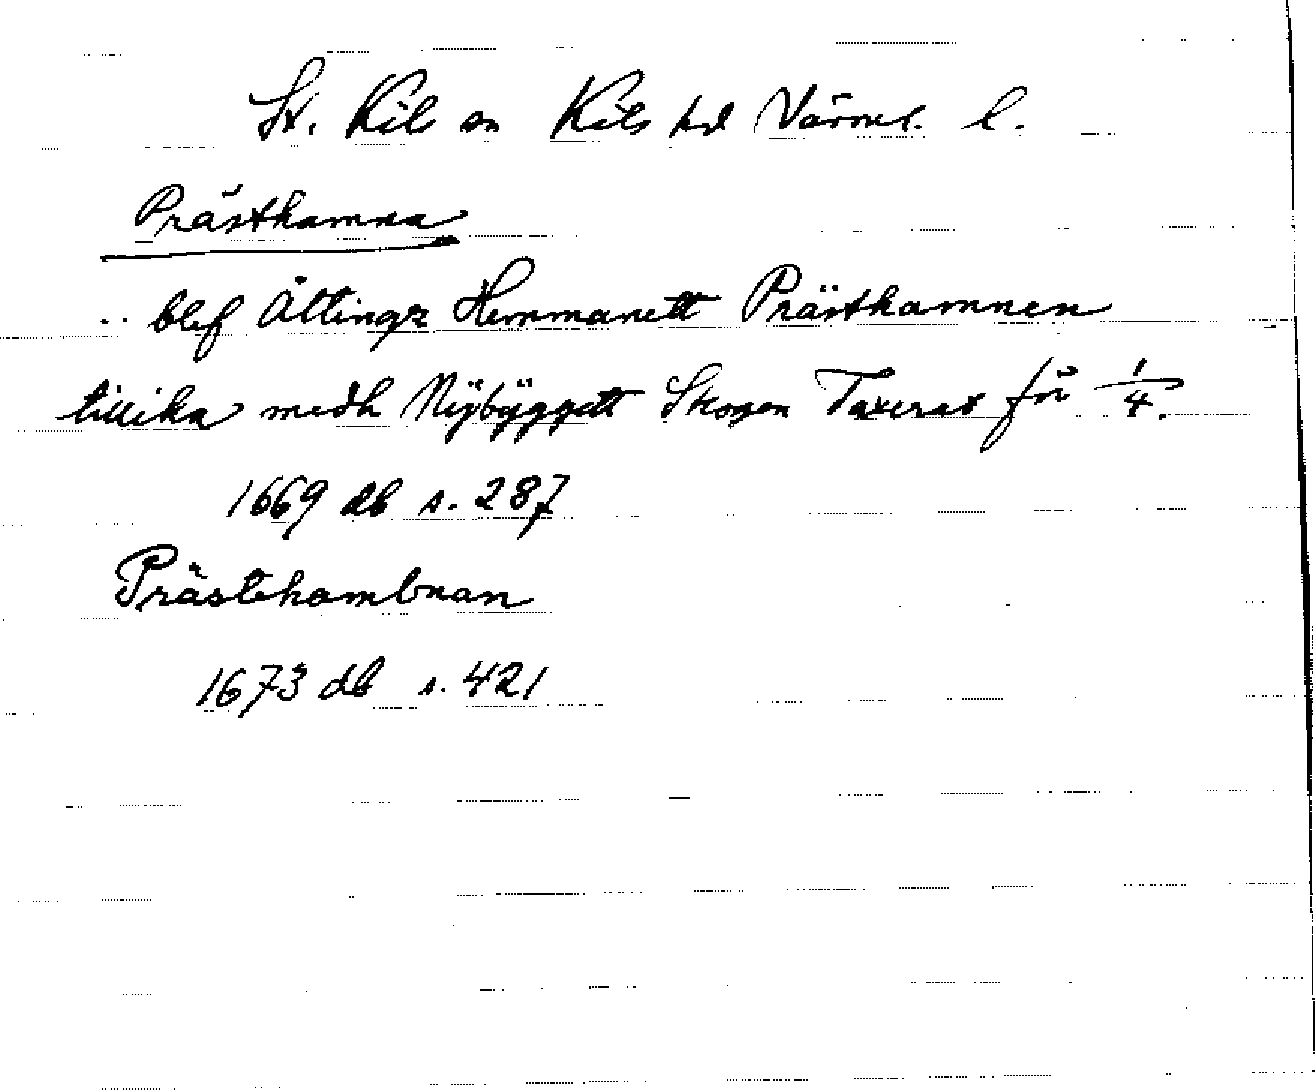 St. Kils sn Kils hd Värml. l.
Prästhamna
.. blef Åttingz Hemmanett Prästhamnen
tillika medh Nÿbÿggett Skogen Taxerat för 1/4.
1669 db s. 287
Prästehambnan
1673 db s. 421